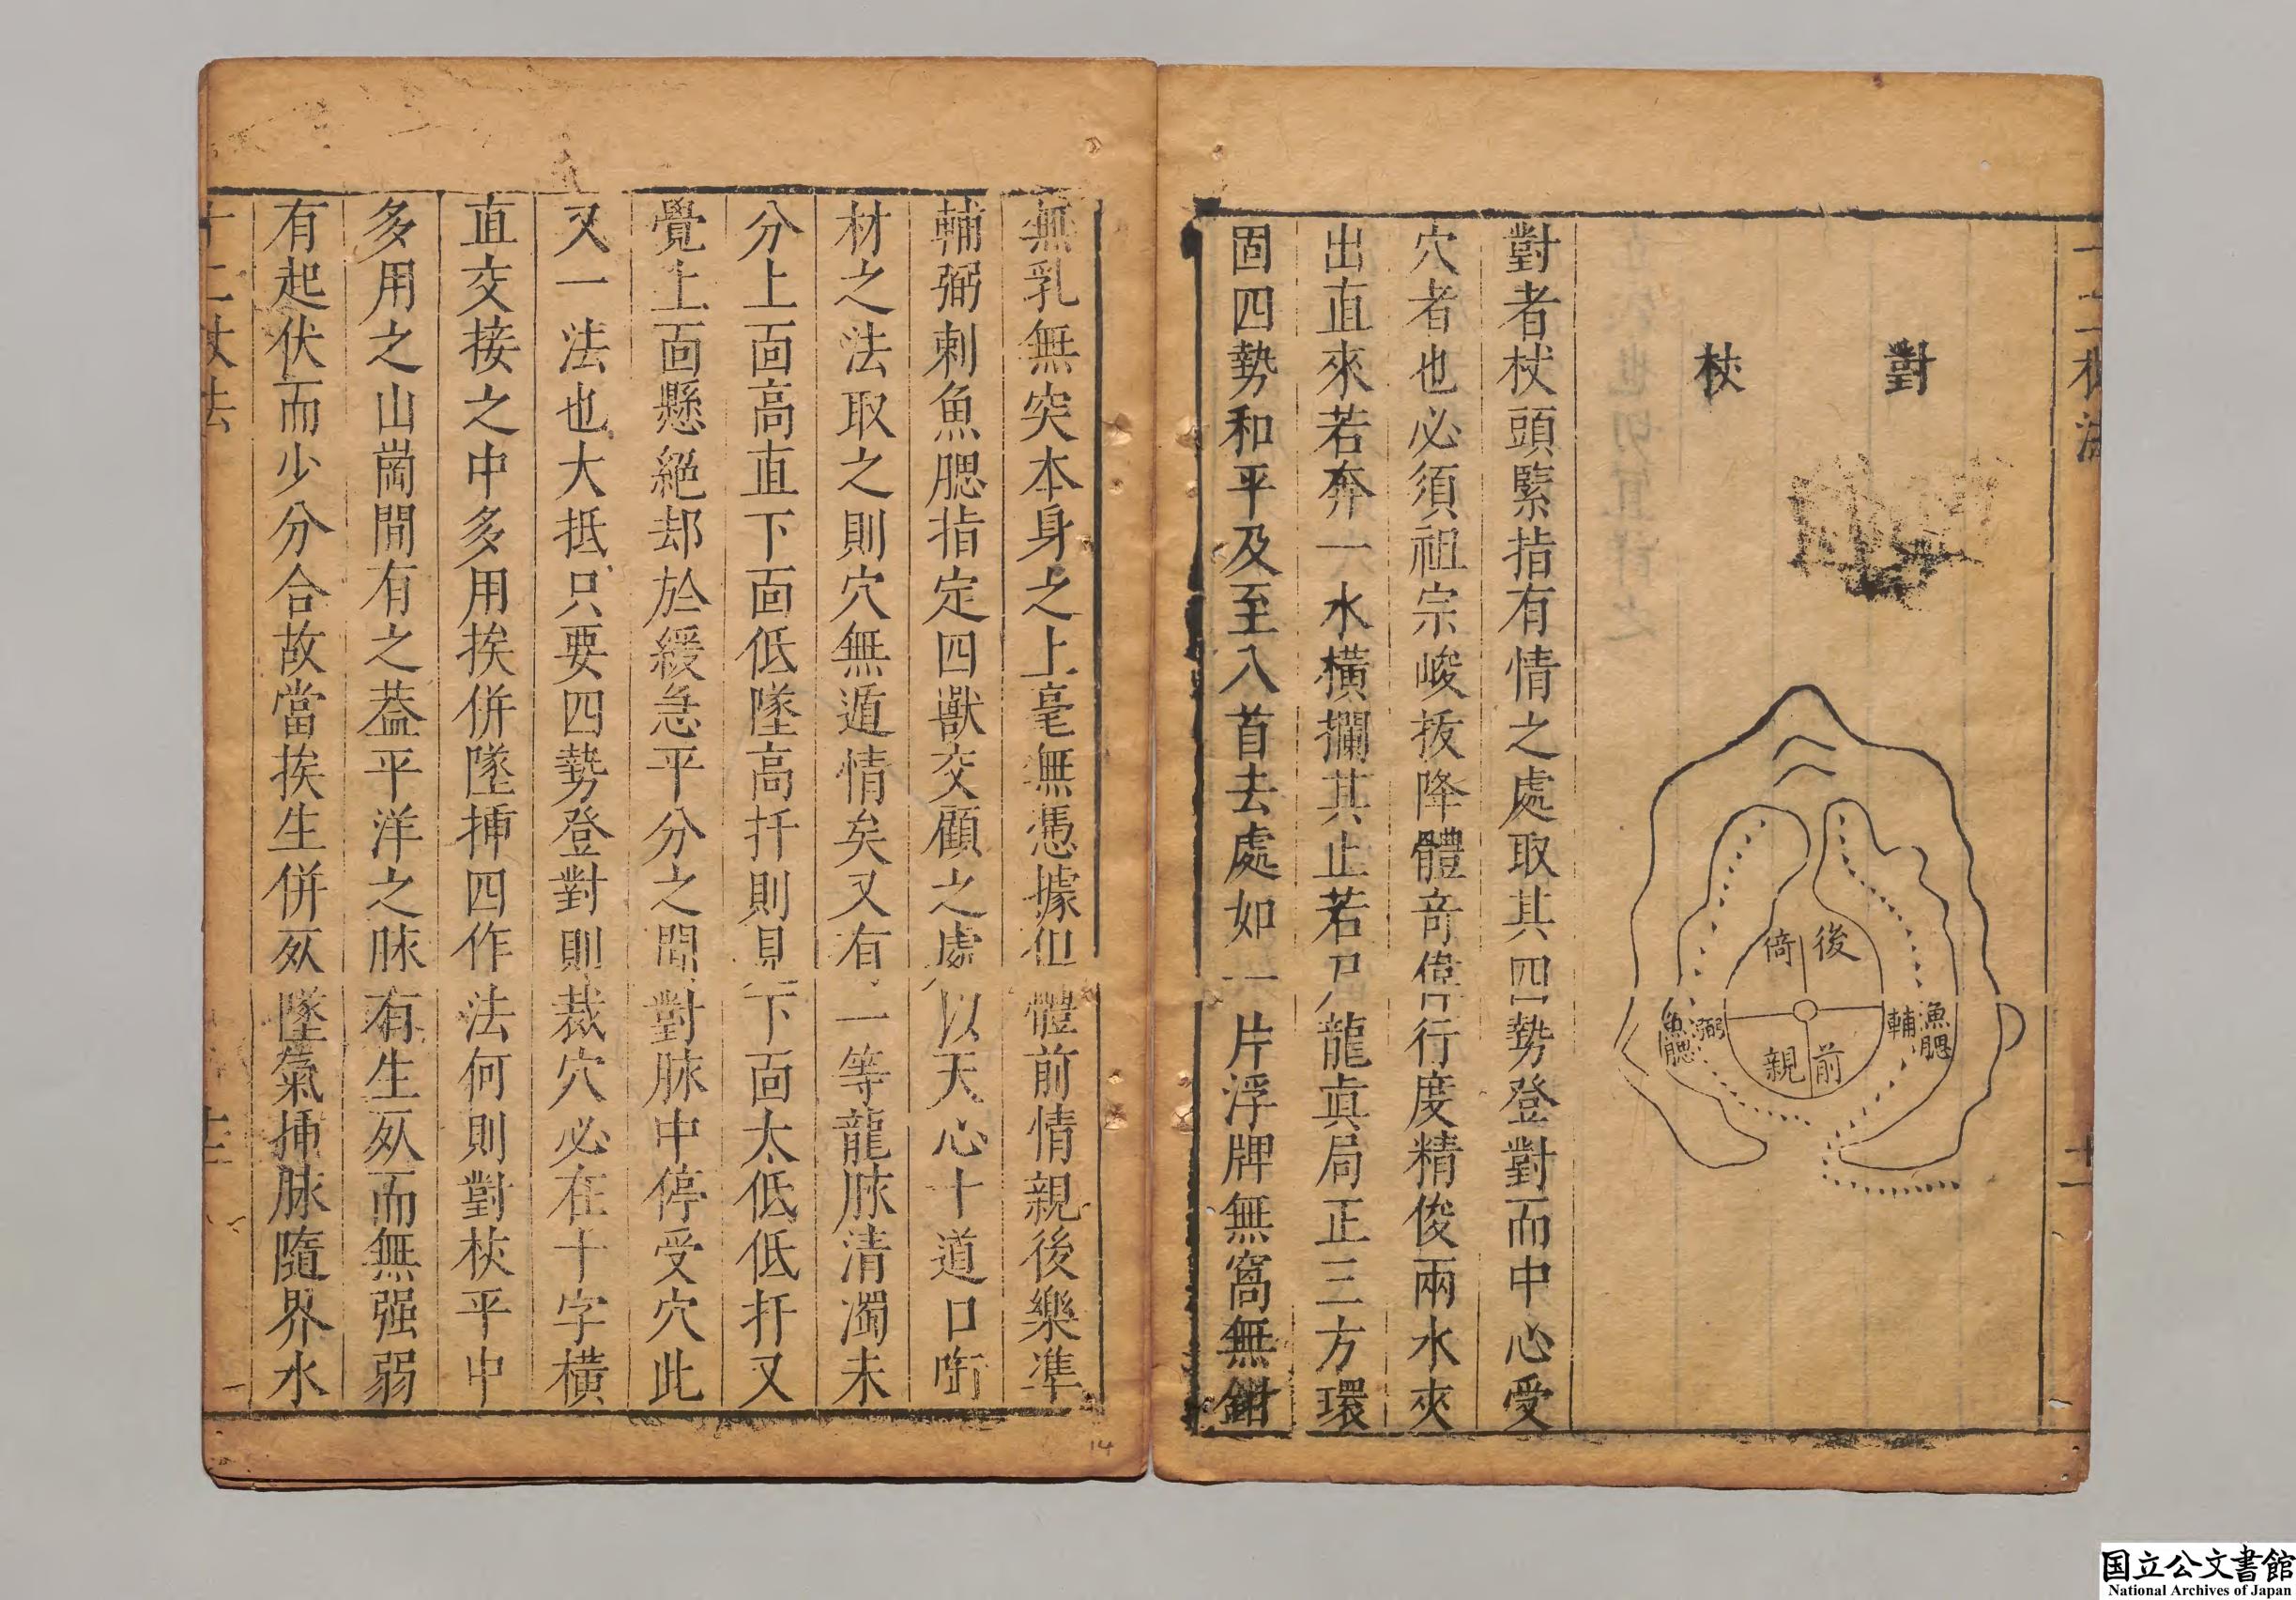 對杖
後
倚
前
親
輔
漁腮
弼
魚腮
對者杖頭緊指有情之處取其四勢登對而中心受
穴者也必須祖宗峻拔降體竒偉行度精俊兩水夾
出直來若奔一水橫攔其止若尸龍眞局正三方環
固四勢和平及至入首去處如一片浮牌無窩無鉗
無乳無突本身之上毫無憑據但體前情親後樂凖
輔弼刺魚腮指定四獸交顧之處以天心十道口啣
材之法取之則穴無遁情矣又有一等龍脉清濁未
分上面高直下面低墜高扦則見下面太低低扦又
覺上面懸絕却於緩急平分之間對脉中停受穴此
又一法也大抵只要四勢登對則裁穴必在十字橫
直交接之中多用挨併墜揷四作法何則對杖平中
多用之山崗間有之葢平洋之脉有生㱠而無强弱
有起伏而少分合故當挨生併㱠墜氣揷脉隨界水
十二杖法
十二
国立公文書館
National Archives of Japan
14
十二杖法
十一